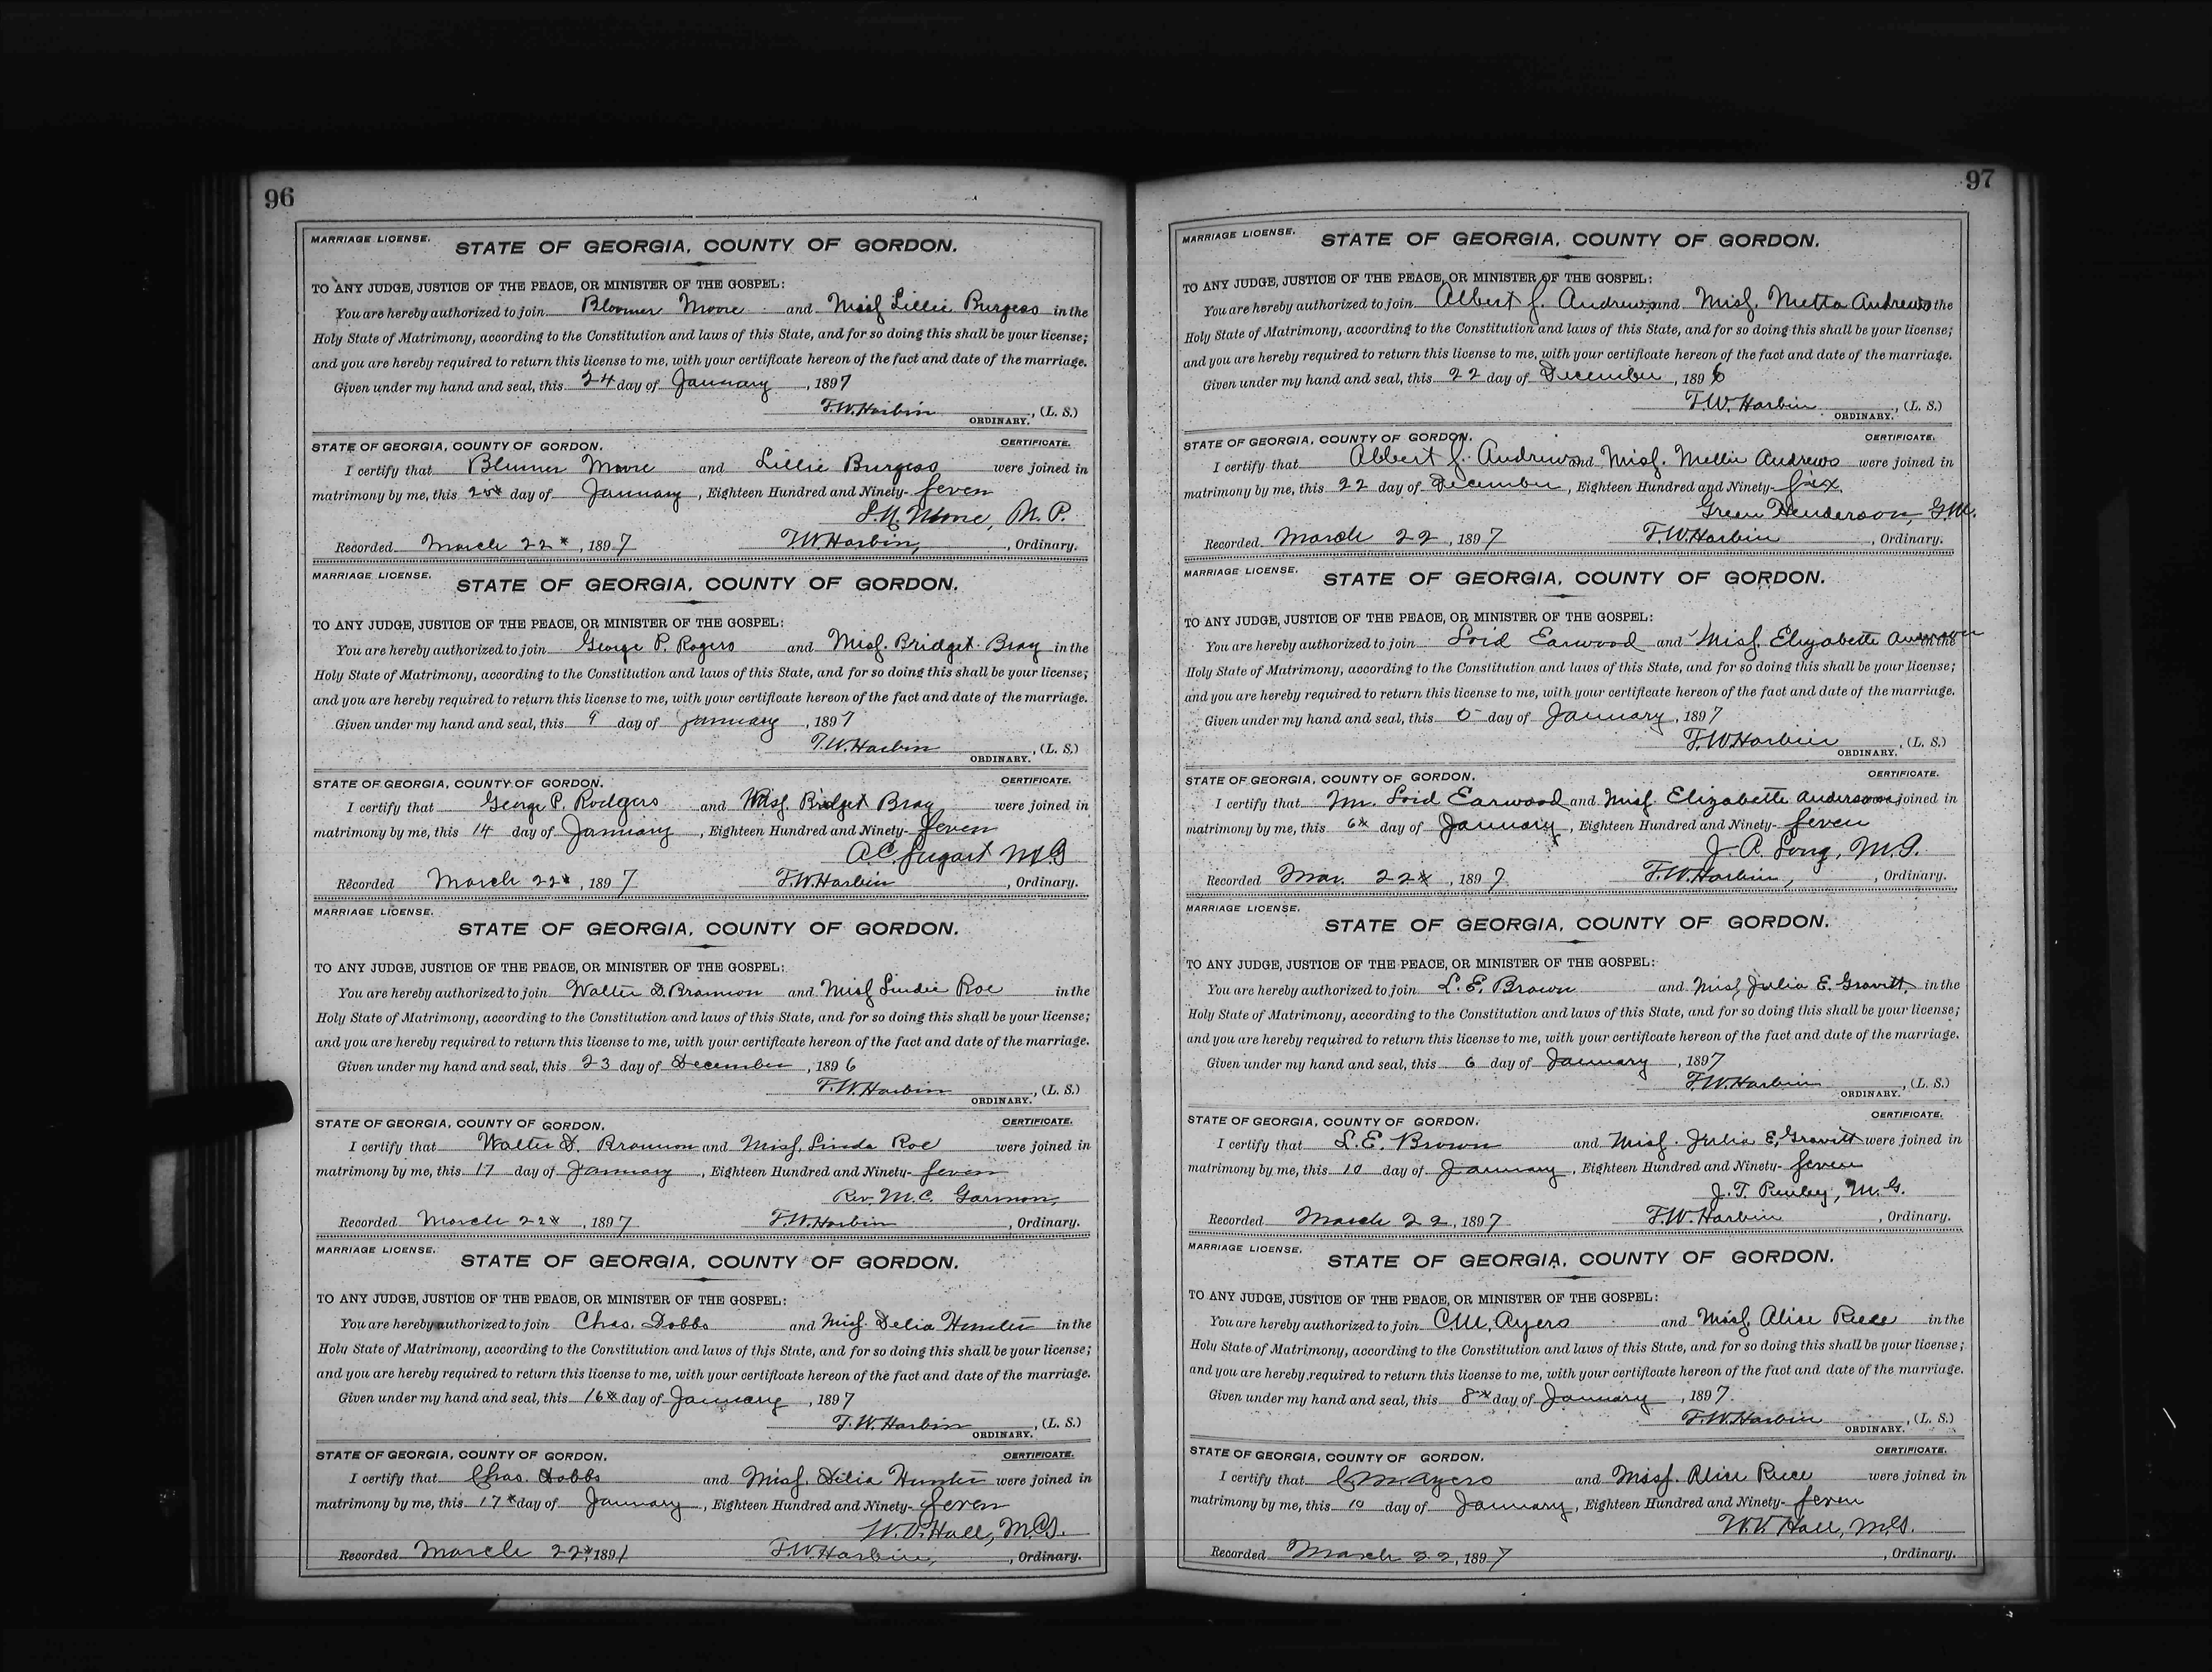 96
MARRIAGE LICENSE.
STATE OF GEORGIA, COUNTY OF GORDON.
TO ANY JUDGE, JUSTICE OF THE PEACE, OR MINISTER OF THE GOSPEL:
You are hereby authorized to join Bloomer Moore and Miss Lillie Burgess in the
Holy State of Matrimony, according to the Constitution and laws of this State, and for so doing this shall be your license;
and you are hereby required to return this license to me, with your certificate hereon of the fact and date of the marriage.
Given under my hand and seal, this 24 day of January, 1897
F.W. Harbin, (L. S.)
ORDINARY.
STATE OF GEORGIA, COUNTY OF GORDON. CERTIFICATE.
I certify that Blumer Moore and Lillie Burgess were joined in
matrimony by me, this day of January, Eighteen Hundred and Ninety-Seven
Moore, N. P.
Recorded March 22, 1897 F.W. Harbin, Ordinary.
MARRIAGE LICENSE.
STATE OF GEORGIA, COUNTY OF GORDON.
TO ANY JUDGE, JUSTICE OF THE PEACE, OR MINISTER OF THE GOSPEL:
You are hereby authorized to join George P. Rogers and Miss. Bridget Bray in the
Holy State of Matrimony, according to the Constitution and laws of this State, and for so doing this shall be your license;
and you are hereby required to return this license to me, with your certificate hereon of the fact and date of the marriage.
Given under my hand and seal, this 9 day of January, 1897
F.W. Harbin, (L. S.)
ORDINARY.
STATE OF GEORGIA, COUNTY OF GORDON. CERTIFICATE.
I certify that George P. Rodgers and Miss. Bridget Bray were joined in
matrimony by me, this 14 day of January, Eighteen Hundred and Ninety-Seven
A.C. Fugart M.G
Recorded March 22, 1897 F.W. Harbin, Ordinary.
MARRIAGE LICENSE.
STATE OF GEORGIA, COUNTY OF GORDON.
TO ANY JUDGE, JUSTICE OF THE PEACE, OR MINISTER OF THE GOSPEL:
You are hereby authorized to join Walter D. Brannon and Miss Lindie Roe in the
Holy State of Matrimony, according to the Constitution and laws of this State, and for so doing this shall be your license;
and you are hereby required to return this license to me, with your certificate hereon of the fact and date of the marriage.
Given under my hand and seal, this 23 day of December, 1896
F.W. Harbin, (L. S.)
ORDINARY.
STATE OF GEORGIA, COUNTY OF GORDON. CERTIFICATE.
I certify that Walter D. Brannon and Miss. Linda Roe were joined in
matrimony by me, this 17 day of January, Eighteen Hundred and Ninety-Seven
Rev. M.C. Garmon,
Recorded March 22, 1897 F.W. Harbin, Ordinary.
MARRIAGE LICENSE.
STATE OF GEORGIA, COUNTY OF GORDON.
TO ANY JUDGE, JUSTICE OF THE PEACE, OR MINISTER OF THE GOSPEL:
You are hereby authorized to join Chas. Dobbs and Miss. Delia Hunter in the
Holy State of Matrimony, according to the Constitution and laws of this State, and for so doing this shall be your license;
and you are hereby required to return this license to me, with your certificate hereon of the fact and date of the marriage.
Given under my hand and seal, this 16 day of January, 1897
F.W. Harbin, (L. S.)
ORDINARY.
STATE OF GEORGIA, COUNTY OF GORDON. CERTIFICATE.
I certify that Chas. Dobbs and Miss. Dilia Hunter were joined in
matrimony by me, this 17 day of January, Eighteen Hundred and Ninety-Seven
Hall, M.G.
Recorded March 22, 1897 F.W. Harbin, Ordinary.
97
MARRIAGE LICENSE.
STATE OF GEORGIA, COUNTY OF GORDON.
TO ANY JUDGE, JUSTICE OF THE PEACE, OR MINISTER OF THE GOSPEL:
You are hereby authorized to join Albert J. Andrews and Miss. Metta Andrews the
Holy State of Matrimony, according to the Constitution and laws of this State, and for so doing this shall be your license;
and you are hereby required to return this license to me, with your certificate hereon of the fact and date of the marriage.
Given under my hand and seal, this 22 day of December, 1896
F.W. Harbin, (L. S.)
ORDINARY.
STATE OF GEORGIA, COUNTY OF GORDON. CERTIFICATE.
I certify that Albert J. Andrews and Miss. Mellie Andrews were joined in
matrimony by me, this 22 day of December, Eighteen Hundred and Ninety-Six.
Green Henderson, G.M.
Recorded March 22, 1897 F.W. Harbin, Ordinary.
MARRIAGE LICENSE.
STATE OF GEORGIA, COUNTY OF GORDON.
TO ANY JUDGE, JUSTICE OF THE PEACE, OR MINISTER OF THE GOSPEL:
You are hereby authorized to join Loid Earwood and Miss. Elizabette in the
Holy State of Matrimony, according to the Constitution and laws of this State, and for so doing this shall be your license;
and you are hereby required to return this license to me, with your certificate hereon of the fact and date of the marriage.
Given under my hand and seal, this 5 day of January, 1897
F.W. Harbin, (L. S.)
ORDINARY.
STATE OF GEORGIA, COUNTY OF GORDON. CERTIFICATE.
I certify that Mr. Loid Earwood and Miss. Elizabette Anderson joined in
matrimony by me, this 6 day of January, Eighteen Hundred and Ninety-Seven
J. A. Long, M.G.
Recorded Mar. 22, 1897 F.W. Harbin, Ordinary.
MARRIAGE LICENSE.
STATE OF GEORGIA, COUNTY OF GORDON.
TO ANY JUDGE, JUSTICE OF THE PEACE, OR MINISTER OF THE GOSPEL:
You are hereby authorized to join L. E. Brown and Miss, Julia E. Gravitt, in the
Holy State of Matrimony, according to the Constitution and laws of this State, and for so doing this shall be your license;
and you are hereby required to return this license to me, with your certificate hereon of the fact and date of the marriage.
Given under my hand and seal, this 6 day of January, 1897
F.W. Harbin, (L. S.)
ORDINARY.
STATE OF GEORGIA, COUNTY OF GORDON. CERTIFICATE.
I certify that L.E. Brown and Miss. Julia E. Gravitt were joined in
matrimony by me, this 10 day of January, Eighteen Hundred and Ninety-Seven
J. T. M. G.
Recorded March 22, 1897 F.W. Harbin, Ordinary.
MARRIAGE LICENSE.
STATE OF GEORGIA, COUNTY OF GORDON.
TO ANY JUDGE, JUSTICE OF THE PEACE, OR MINISTER OF THE GOSPEL:
You are hereby authorized to join C.M. Ayers and Miss. Alice Reece in the
Holy State of Matrimony, according to the Constitution and laws of this State, and for so doing this shall be your license;
and you are hereby required to return this license to me, with your certificate hereon of the fact and date of the marriage.
Given under my hand and seal, this 8 day of January, 1897.
F.W. Harbin, (L. S.)
ORDINARY.
STATE OF GEORGIA, COUNTY OF GORDON. CERTIFICATE.
I certify that C.M. Ayers and Miss. Alice Rece were joined in
matrimony by me, this 10 day of January, Eighteen Hundred and Ninety-Seven
Hall, M.G.
Recorded March 22, 1897, Ordinary.